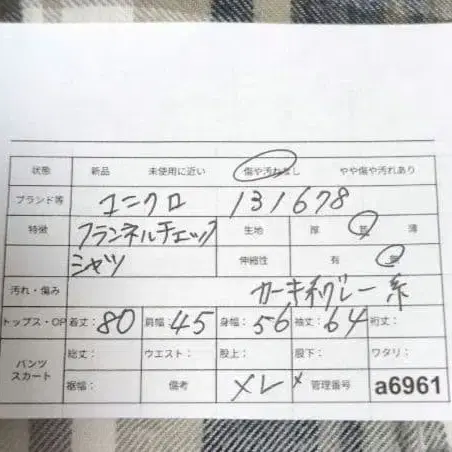 状態 新品 未使用に近い 傷や汚れなし やや傷や汚れあり
ブランド等 ユニクロ 131678
特徴 フランネルチェック 生地 厚 普 薄
シャツ 伸縮性 有 無
汚れ・傷み カーキ グレー系
トップス・OP 着丈:80 肩幅:45 身幅:56 袖丈:64 裄丈:
パンツ スカート 総丈: ウエスト: 股上: 股下: ワタリ:
裾幅: 備考 メレ× 管理番号 a6961